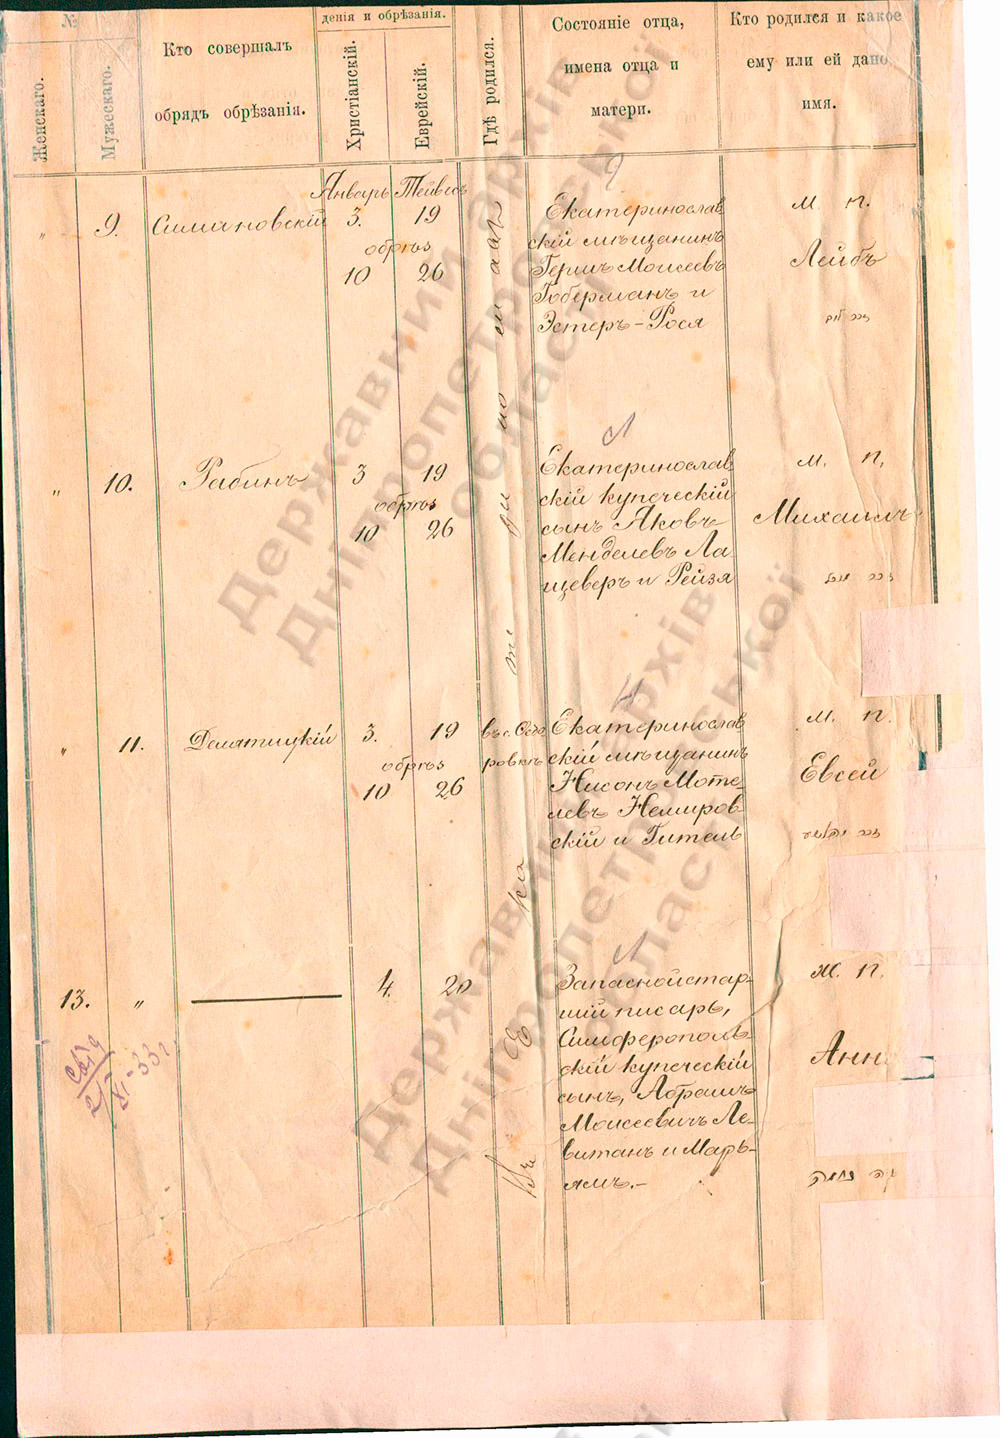 №
Женскаго.
Мужескаго.
Кто совершалъ
обрядъ обрѣзанія.
денія и обрѣзанія.
Христіанскій.
Еврейскій.
Гдѣ родился.
Состояніе отца,
имена отца и
матери.
Кто родился и какое
ему или ей дано
имя.
Январь Тейвесъ
" 9. 3. 19
обрѣз
10 26
Екатеринослав
скій мѣщанинъ
Гершъ Моисеевъ
Гоберманъ и
Эстеръ-Рося
м. п.
Лейбъ
" 10. Рабинъ 3 19
обрѣз
10 26
Екатеринослав
скій купеческій
сынъ Яковъ
Менделевъ Ла
щеверъ и Рейзя
м. п.
Михаилъ
" 11. Делятицкій 3. 19
обрѣз
10 26
въ с. Федо
ровкѣ
Екатеринослав
скій мѣщанинъ
Нисонъ Моте-
левъ Немиров
скій и Гитель
м. п.
Евсей
13. " 4. 20
Запасной стар-
шій писарь,
Симферополь-
скій купеческій
сынъ, Абрамъ
Моисеевичъ Ле-
витанъ и Марь-
ямъ.-
ж. п.
Анн
въ Екатеринославѣ
Державний архів
Дніпропетровської
області
Державний архів
Дніпропетровської
області